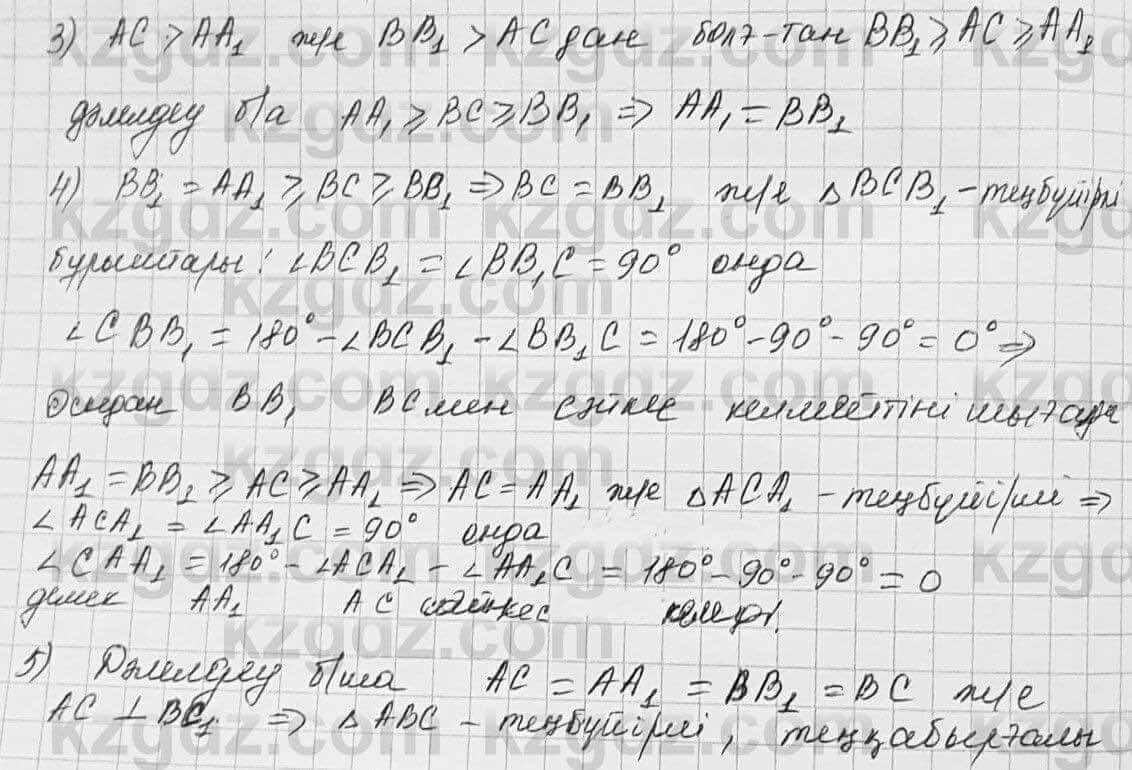 3) AC > AA₁ ж/е BB₁ > AC дан болғ-тан BB₁ ⩾ AC ⩾ AA₁
дәлелдеу б/а AA₁ ⩾ BC ⩾ BB₁ ⇒ AA₁ = BB₁
4) BB₁ = AA₁ ⩾ BC ⩾ BB₁ ⇒ BC = BB₁ ж/е △BCB₁ - теңбүйірлі
бұрыштары: ∠BCB₁ = ∠BB₁C = 90° онда
∠CBB₁ = 180° - ∠BCB₁ - ∠BB₁C = 180° - 90° - 90° = 0° ⇒
Осыдан BB₁ BC мен сәйкес келмейтіні шығады
AA₁ = BB₁ ⩾ AC ⩾ AA₁ ⇒ AC = AA₁ ж/е △ACA₁ - теңбүйі/лі ⇒
∠ACA₁ = ∠AA₁C = 90° онда
∠CAA₁ = 180° - ∠ACA₁ - ∠AA₁C = 180° - 90° - 90° = 0
демек AA₁ AC сәйкес келеді.
5) Дәлелдеу б/ша AC = AA₁ = BB₁ = BC ж/е
AC ⊥ BC₁ ⇒ △ABC - теңбүйір/лі, теңқабырғалы
kzgdz.com